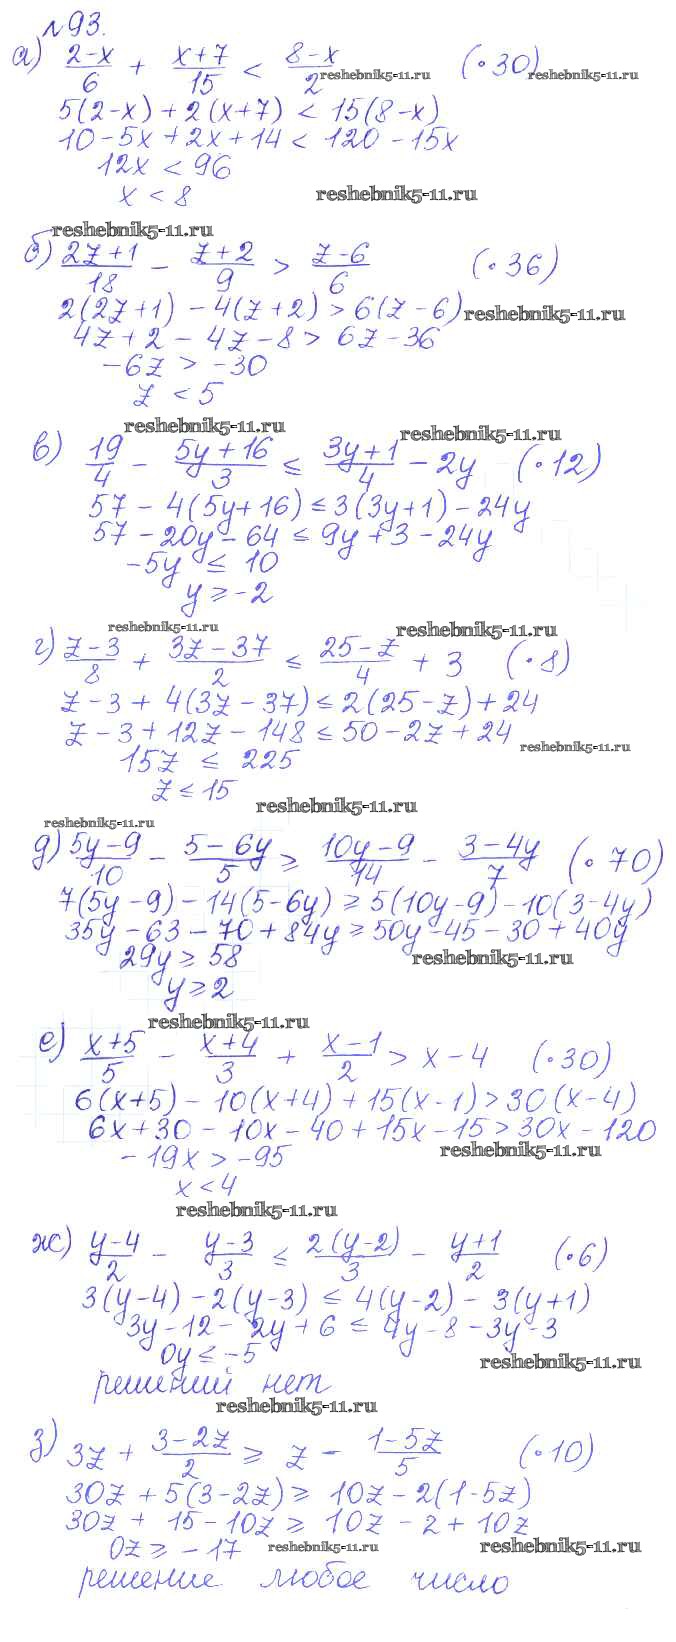 №93.
а) (2-x)/6 + (x+7)/15 < (8-x)/2 (·30)
reshebnik5-11.ru reshebnik5-11.ru
5(2-x)+2(x+7) < 15(8-x)
10-5x+2x+14 < 120-15x
12x < 96
x < 8 reshebnik5-11.ru
reshebnik5-11.ru
б) (2z+1)/18 - (z+2)/9 > (z-6)/6 (·36)
2(2z+1) - 4(z+2) > 6(z-6) reshebnik5-11.ru
4z+2 - 4z-8 > 6z-36
-6z > -30
z < 5
reshebnik5-11.ru reshebnik5-11.ru
в) 19/4 - (5y+16)/3 ≤ (3y+1)/4 - 2y (·12)
57 - 4(5y+16) ≤ 3(3y+1) - 24y
57 - 20y - 64 ≤ 9y+3 - 24y
-5y ≤ 10
y ≥ -2
reshebnik5-11.ru reshebnik5-11.ru
г) (z-3)/8 + (3z-37)/2 ≤ (25-z)/4 + 3 (·8)
z-3 + 4(3z-37) ≤ 2(25-z)+24
z-3+12z-148 ≤ 50-2z+24
reshebnik5-11.ru
15z ≤ 225
z ≤ 15 reshebnik5-11.ru
reshebnik5-11.ru
д) (5y-9)/10 - (5-6y)/5 ≥ (10y-9)/14 - (3-4y)/7 (·70)
7(5y-9) - 14(5-6y) ≥ 5(10y-9) - 10(3-4y)
35y-63-70+84y ≥ 50y-45-30+40y
29y ≥ 58 reshebnik5-11.ru
y ≥ 2
reshebnik5-11.ru
е) (x+5)/5 - (x+4)/3 + (x-1)/2 > x-4 (·30)
6(x+5) - 10(x+4) + 15(x-1) > 30(x-4)
6x+30 - 10x-40+15x-15 > 30x-120
-19x > -95 reshebnik5-11.ru
x < 4
reshebnik5-11.ru
ж) (y-4)/2 - (y-3)/3 ≤ 2(y-2)/3 - (y+1)/2 (·6)
3(y-4) - 2(y-3) ≤ 4(y-2) - 3(y+1)
3y-12 - 2y+6 ≤ 4y-8-3y-3
0y ≤ -5 reshebnik5-11.ru
решений нет
reshebnik5-11.ru
з) 3z + (3-2z)/2 ≥ z - (1-5z)/5 (·10)
30z + 5(3-2z) ≥ 10z - 2(1-5z)
30z + 15-10z ≥ 10z-2+10z
0z ≥ -17 reshebnik5-11.ru reshebnik5-11.ru
решение любое число